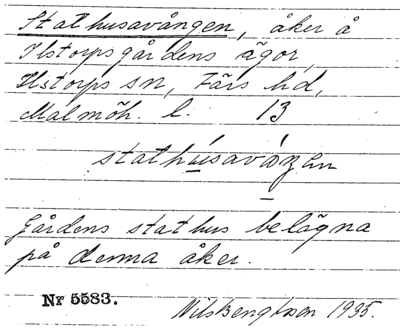 Stathusavången, åker å
Ilstorpsgårdens ägor,
Ilstorps sn, Färs hd,
Malmöh. l. 13
stathúsavàŋen
Gårdens stathus belägna
på denna åker.
Nr 5583.
Nils Bengtsson 1935.